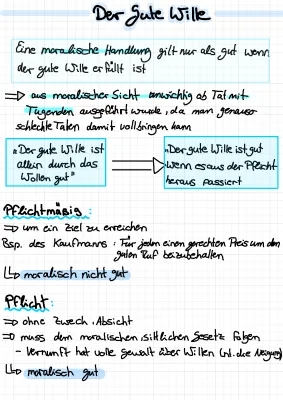 Der Gute Wille
Eine moralische Handlung gilt nur als gut wenn
der gute Wille erfüllt ist
=> aus moralischer Sicht unwichtig ob Tat mit
Tugenden ausgeführt wurde, da man genauso
schlechte Taten damit vollbringen kann
„Der gute Wille ist
allein durch das
Wollen gut"
=>
„Der gute Wille ist gut
wenn es aus der Pflicht
heraus passiert
Pflichtmäßig:
=> um ein Ziel zu erreichen
Bsp. des Kaufmanns: Für jeden einen gerechten Preis um den
guten Ruf beizubehalten
↳ moralisch nicht gut
Pflicht:
=> ohne Zweck, Absicht
=> muss dem moralischen, sittlichen Gesetz folgen
- Vernunft hat volle gewalt über Willen (nt. die Neigung)
↳ moralisch gut